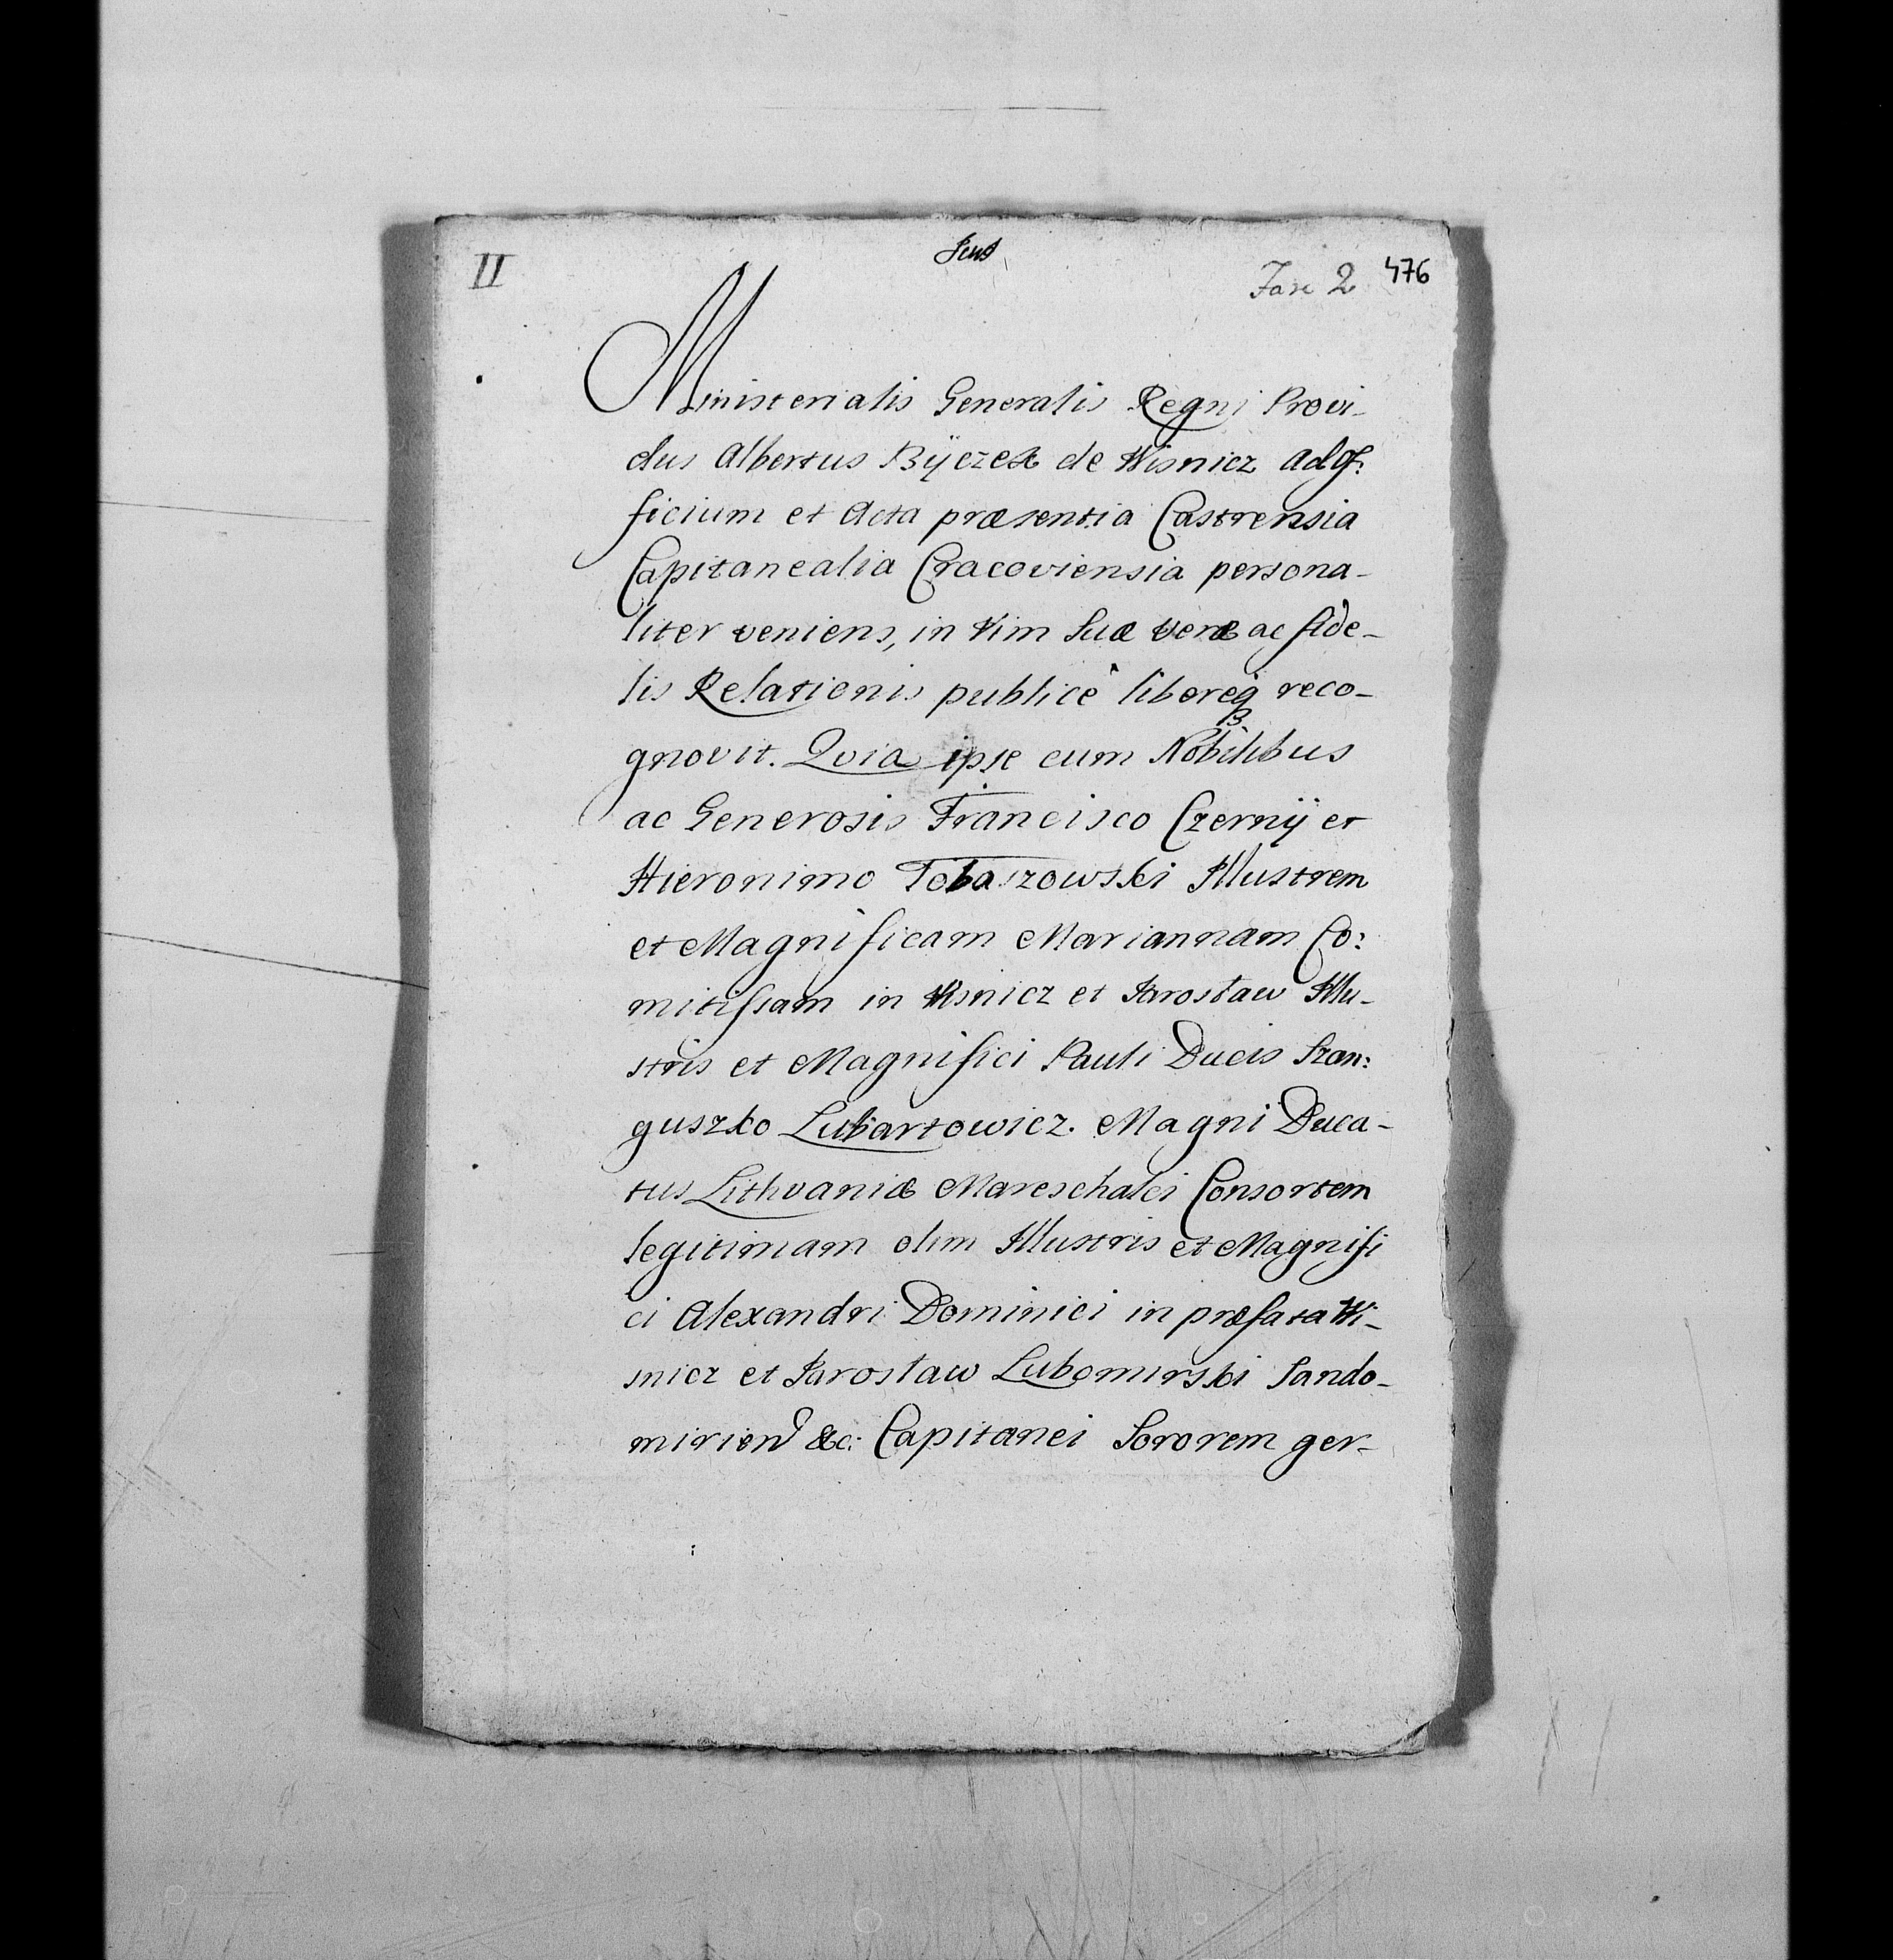 II
Fasc 2 476
Ministerialis Generalis Regni Provi-
dus Albertus Byczek de Wisnicz adOf:
ficium et Acta præsentia Castrensia
Capitanealia Cracoviensia persona-
liter veniens, in Vim Suæ veræ ac fide-
lis Relationis publicè libereq reco-
gnovit. Qvia ipse cum Nobilibus
ac Generosis Francisco Czernÿ et
Hieronimo Tobaszowski Illustrem
et Magnificam Mariannam Co:
mitissam in Wisnicz et Jarosław Illu-
stris et Magnifici Pauli Ducis San:
guszko Lubartowicz. Magni Duca-
tus Lithvaniæ Mareschalci Consortem
legitimam olim Illustris et Magnifi
ci Alexandri Dominici in præfata Wi-
snicz et Jarosław Lubomirski Sando-
mirien &c: Capitanei Sororem ger-